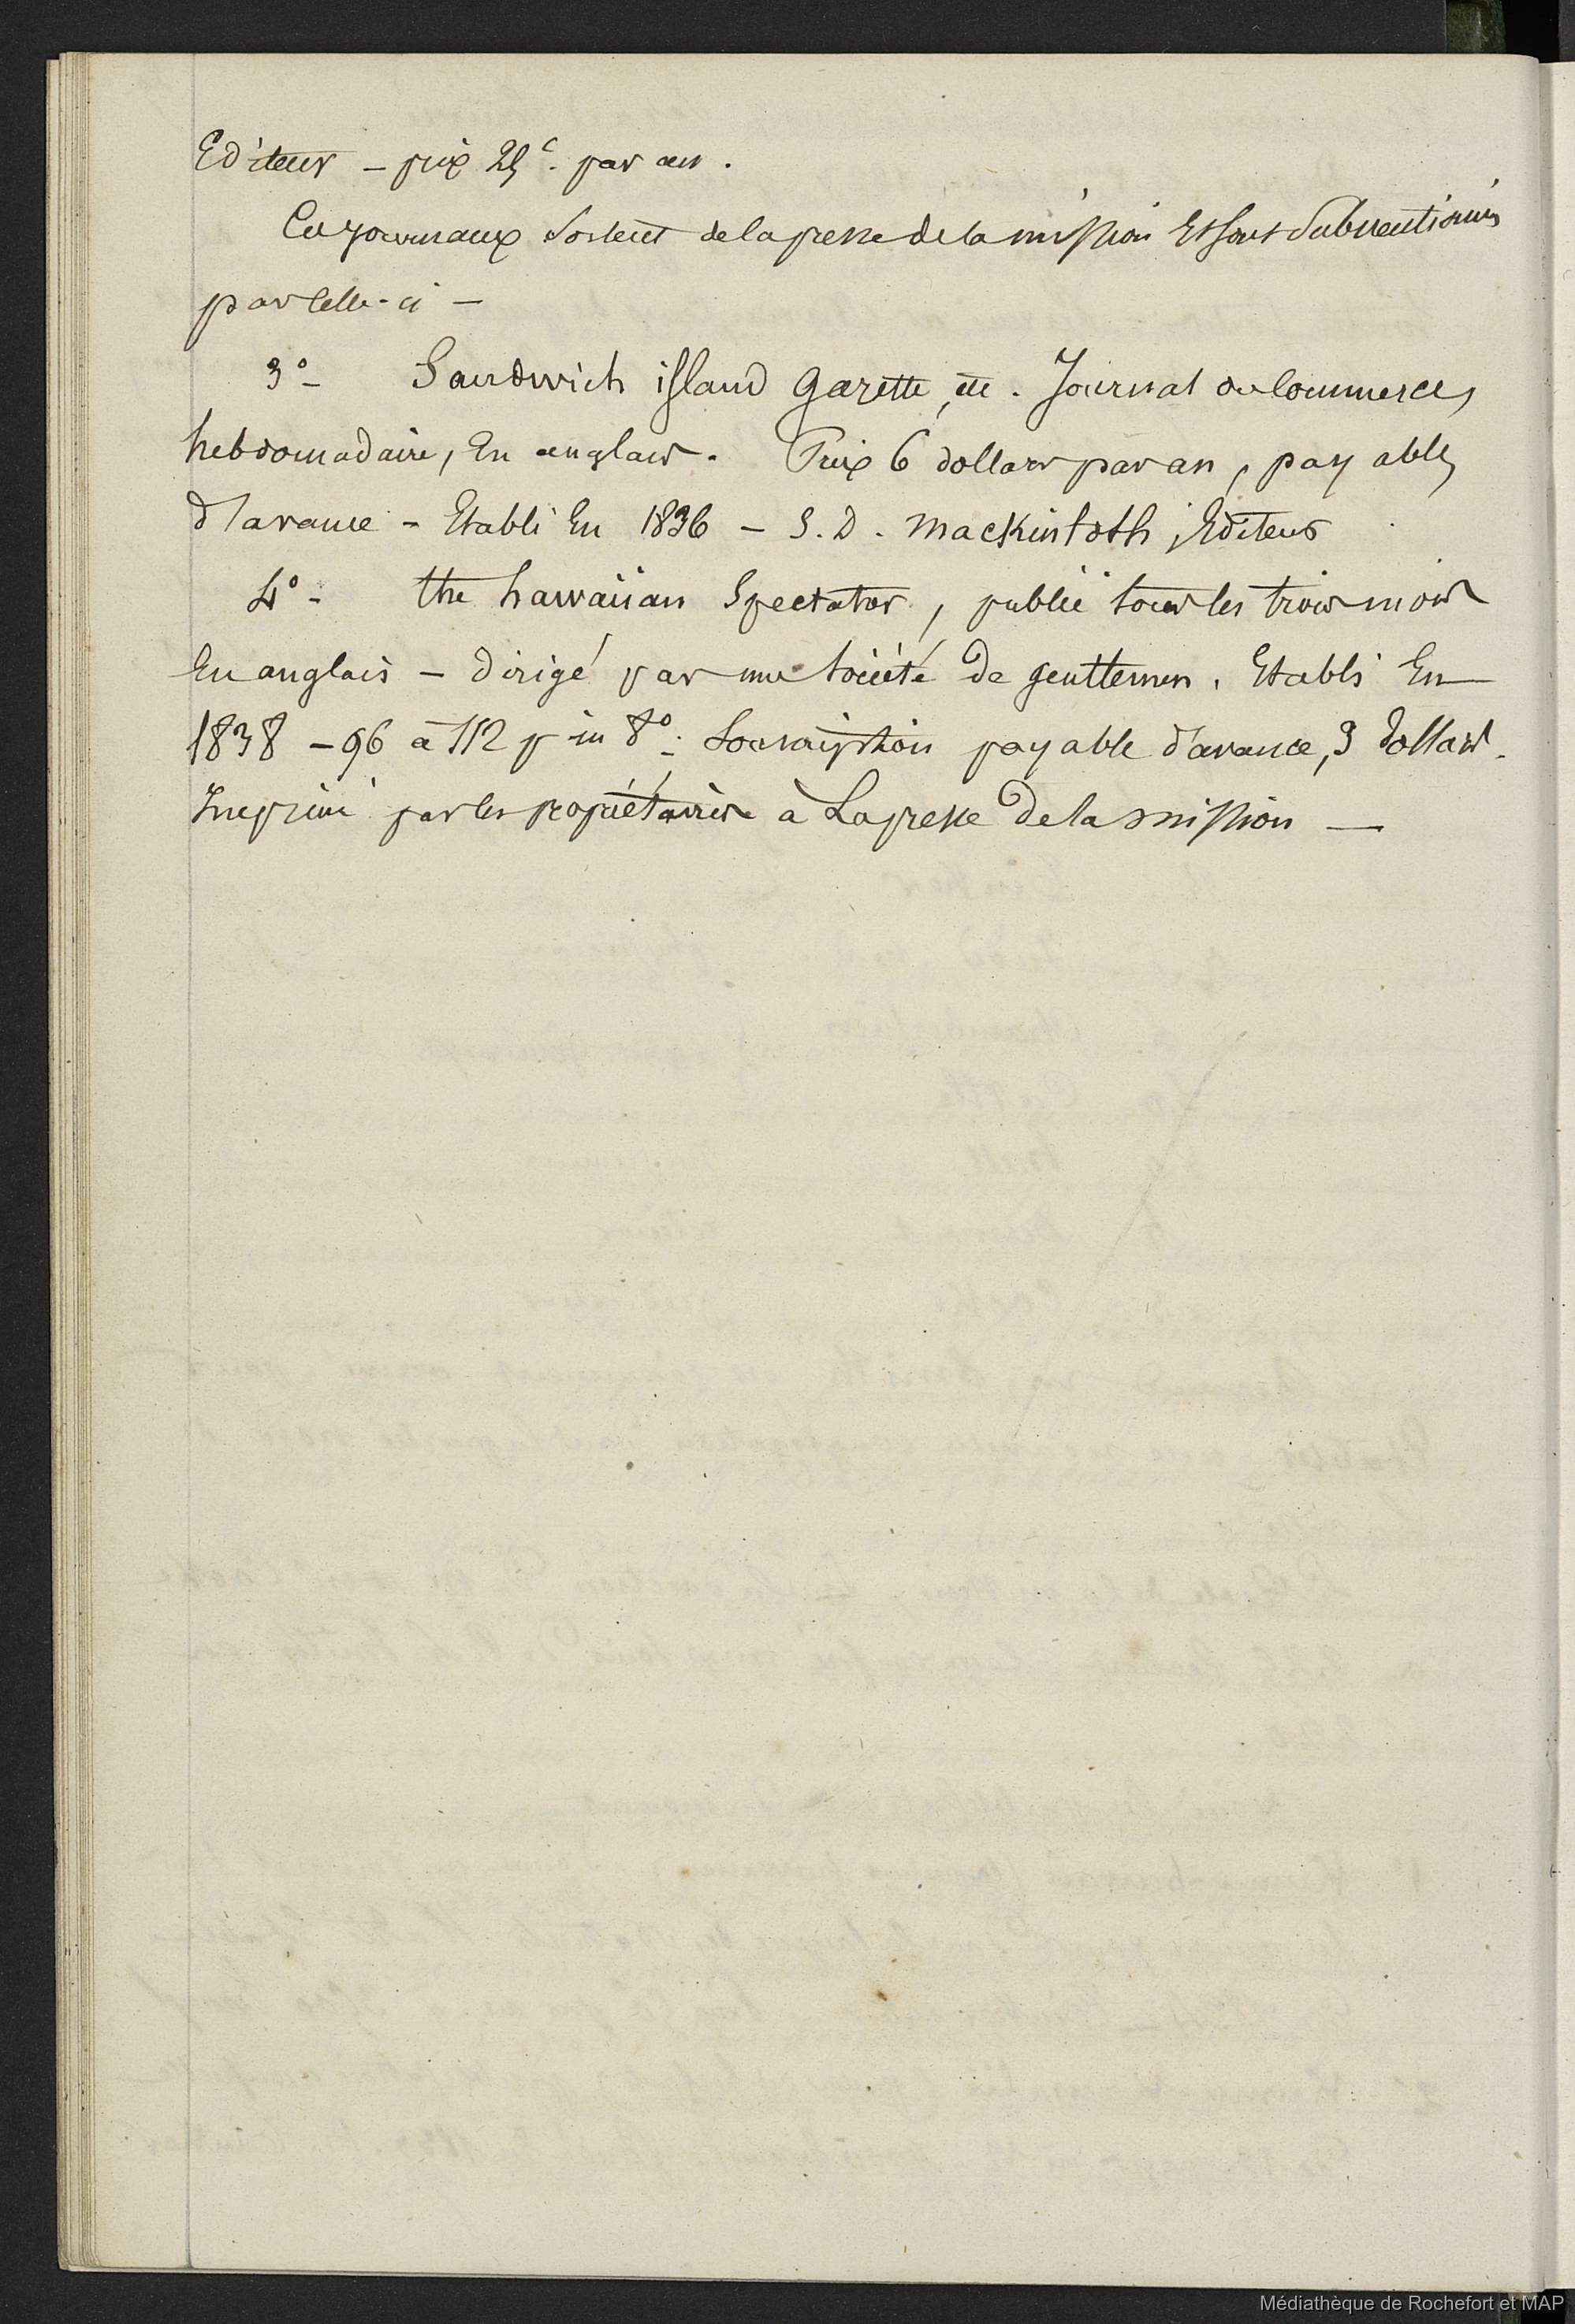 Editeur – prix 25c. par an.
Ces journaux sortent de la presse de la mission Et sont subventionnés
par celle-ci –
3° – Sandwich island gazette, etc. Journal du Commerce,
hebdomadaire, En anglais. Prix 6 dollars par an, payable
d'avance – Etabli En 1836 – S. D. Mackintosh, Editeur
4° – the hawaiian Spectator, publié tous les trois mois
En anglais – dirigé par une société de gentlemen. Etabli En
1838 – 96 à 112 p in 8° – Souscription payable d'avance, 3 dollars.
Imprimé par les propriétaires à La presse de la mission —
Médiathèque de Rochefort et MAP